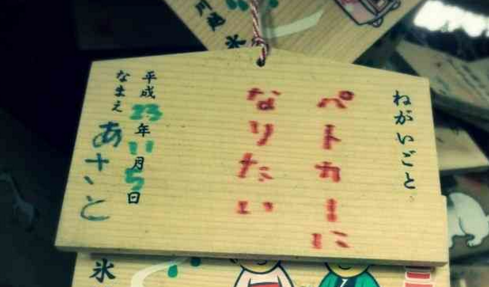 ねがいごと
ペトカーに
なりたい
平成23年11月5日
なまえ あさと
氷
氷